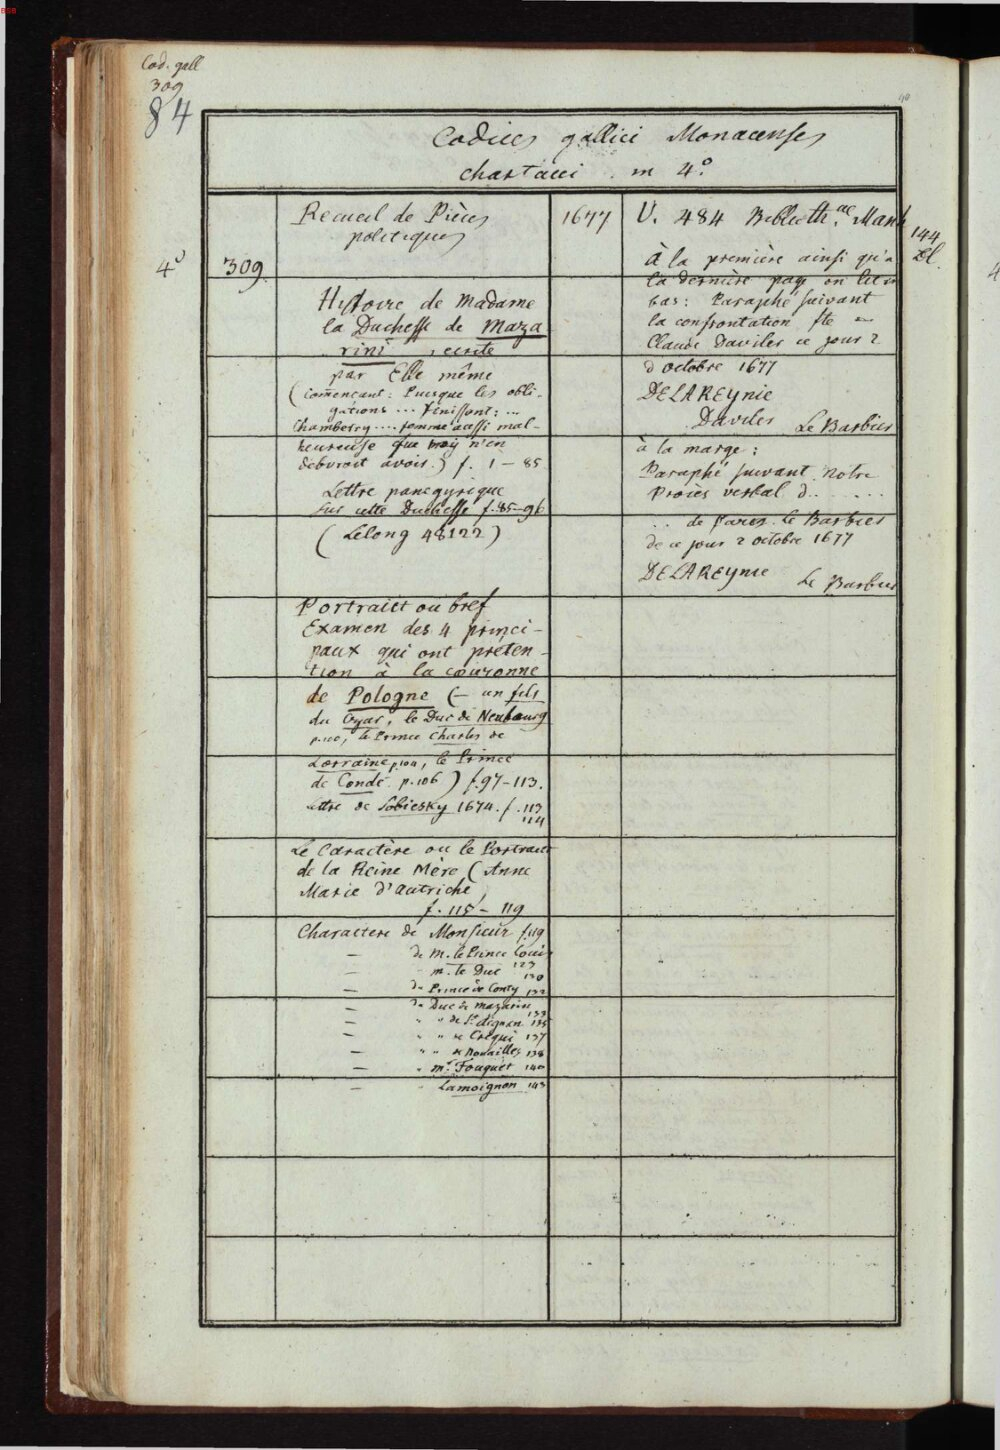 Cod. gall
309
84
90
Codices gallici Monacenses
chartacei in 4°.
Recueil de Pièces
politiques
1677
U. 484 Biblioth.ae Manh
144
Bl.
4°
309.
Hystoire de Madame
la Duchesse de Maza
rini, ecrite
par Elle même
(comencant: Puisque les obli-
gations ... finissant: ...
Chambery .... femme aussi mal-
heureuse que moy n'en
debvroit avoir.) f. 1 – 85
Lettre panegyrique
sur cette Duchesse f. 85–96
(Lelong 48122)
Portraict ou bref
Examen des 4 princi-
paux qui ont préten-
tion à la couronne
de Pologne (– un fils
du Czar, le Duc de Neubourg
p. 100, le Prince Charles de
Lorraine p. 104, le Prince
de Condé p. 106) f. 97–113.
Lettre de Sobiesky 1674. f. 113
114
Le Caractère ou le Portrait
de la Reine Mère (Anne
Marie d'Autriche)
f. 115 – 119
Charactere de Monsieur f. 119
— de M. le Prince Louis
123
— m. le Duc 130
— du Prince de Conty 132
— du Duc de Mazarin
133
— " " de St. Aignan 135
— " " de Créqui 137
— " " de Noailles 138
— " Mr. Fouquet 140
— " Lamoignon 143
à la première ainsi qu'a
la dernière page on lit en
bas: Paraphé suivant
la confrontation fte
Claude Daviles ce jour 2
d'octobre 1677
DELAREynie
Daviles Le Barbier
à la marge:
Paraphé suivant notre
Procès verbal d.. ......
.. de parez. le Barbier
de ce jour 2 octobre 1677
DELAREynie Le Barbier